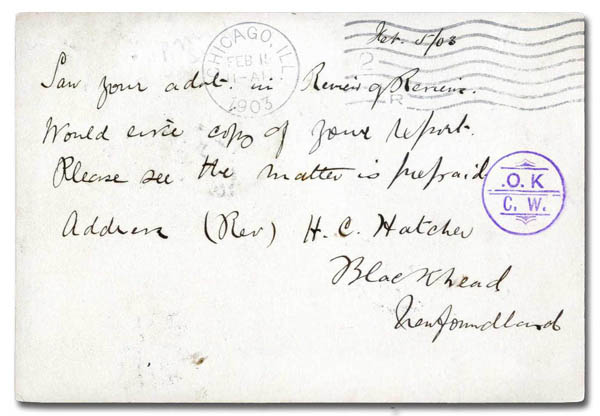 Feb. 5/03
CHICAGO, ILL.
FEB 1
1903
2
R
Saw your advt. in Review of Reviews.
Would like copy of your report.
Please see the matter is prepaid
Address (Rev) H. C. Hatcher
Blackhead
Newfoundland
.O.K
C. W.